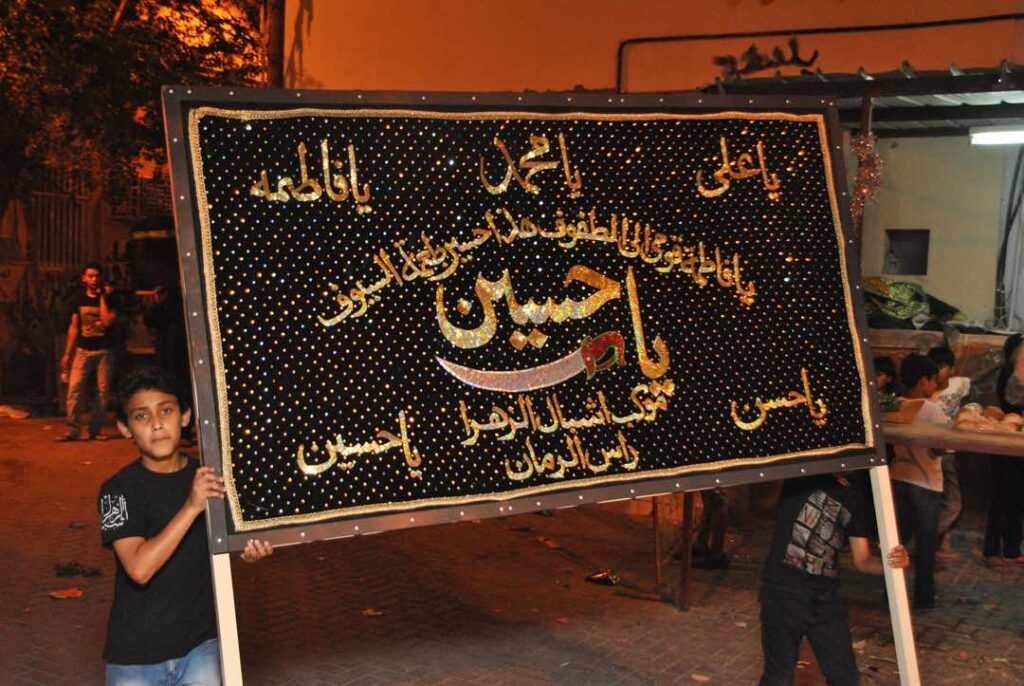 ياعلي
يامحمد
يافاطمه
يافاطمة قومي الى الطفوف هذا حسين طعمة السيوف
ياحسين
موكب اشبال الزهرا
راس الرمان
ياحسن
ياحسين